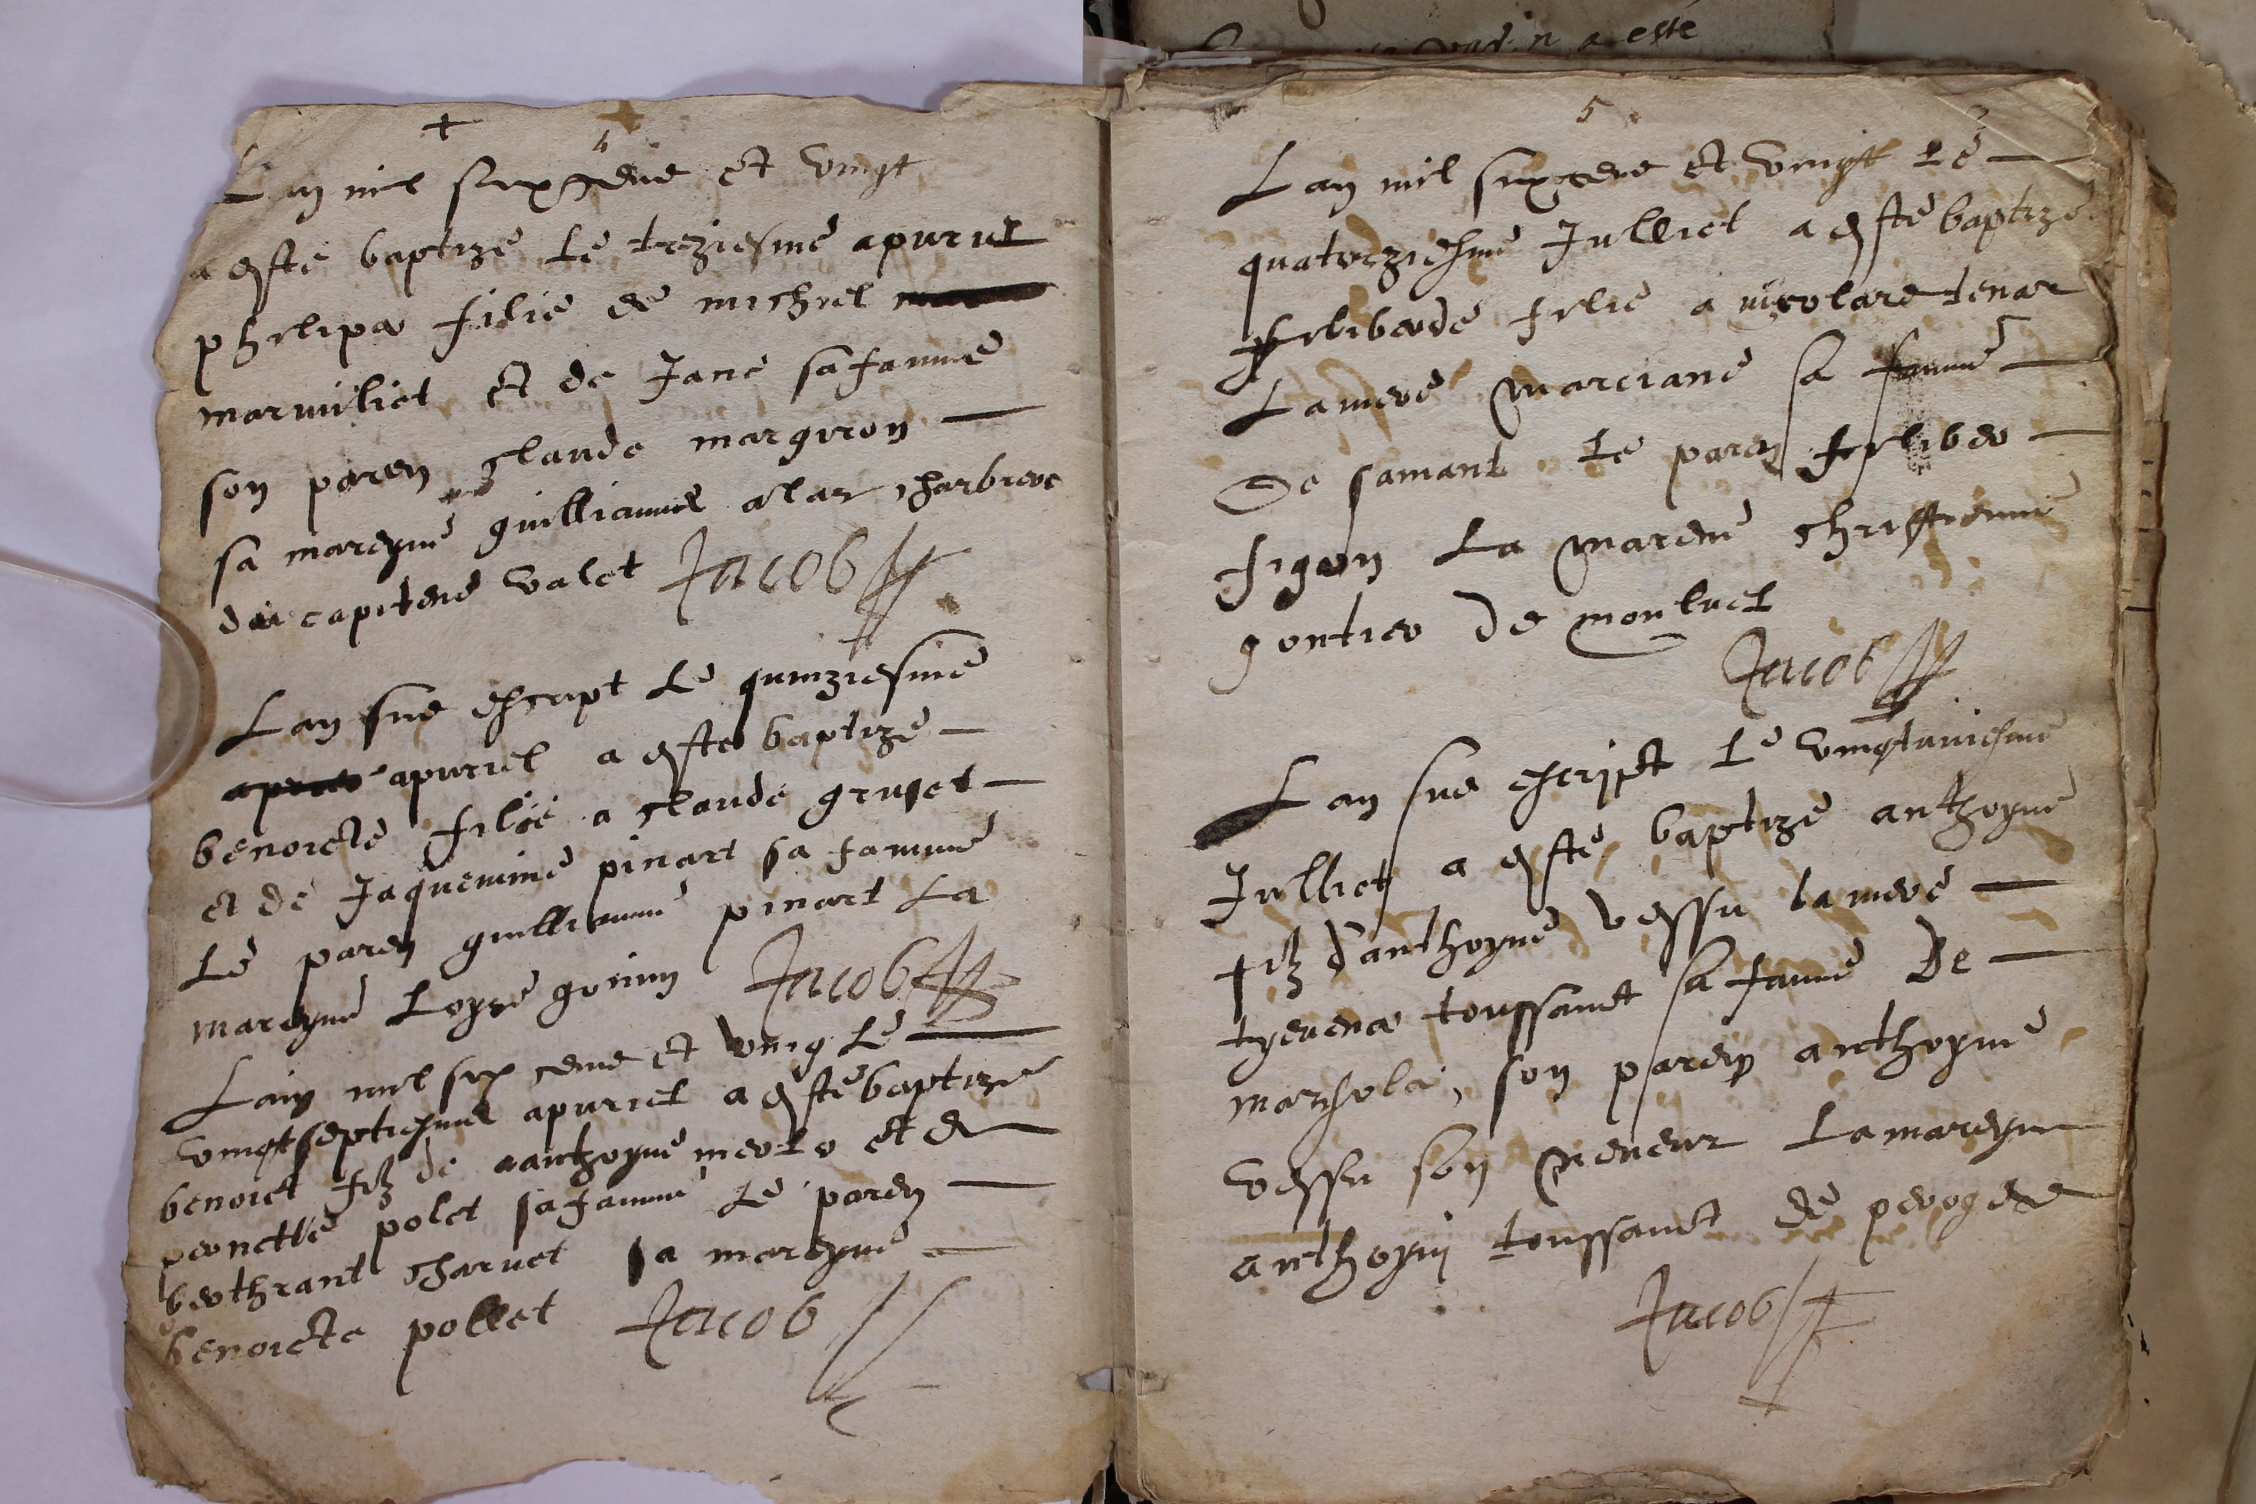 vadin a esté
4
Lan mil sixcens et vingt
a esté baptizé le treziesme apvril
philipa filie de michiel
marmiliet et de Jane sa famme
son paren claude margiron
sa mareyne guilliaume alar charbiere
dict capitene valet Jacob
Lan sus escript le quinziesme
apvriel a esté baptizé
benoicte filie a claude gruset
et de Jaquemine pinart sa famme
Le paren guilliaume pinart La
mareyne Loyse gonin Jacob
Lan mil six cens et ving Le
vingtseptiesme apvriel a esté baptizé
benoict filz de aanthoyne merlo et de
pernette polet sa famme Le paren
berthrant charvet sa mareyne
benoicte pollet Jacob
5
Lan mil sixcens et vingt Le
quatorziesme Julliet a esté baptizé
filiberde filie a nicolare tenar
La mere marciane sa famme
De samant Le paren filiber
figon La marene christienne
gontier de monluel
Jacob
Lan sus escript Le vingtuniesme
Julliet a esté baptizé anthoyne
filz d'anthoyne vessu la mere
tyevena toussainct sa famme De
marsola, son pareyn anthoyne
vessu son neveur La mareyne
anthoyni toussainct de peroges
Jacob